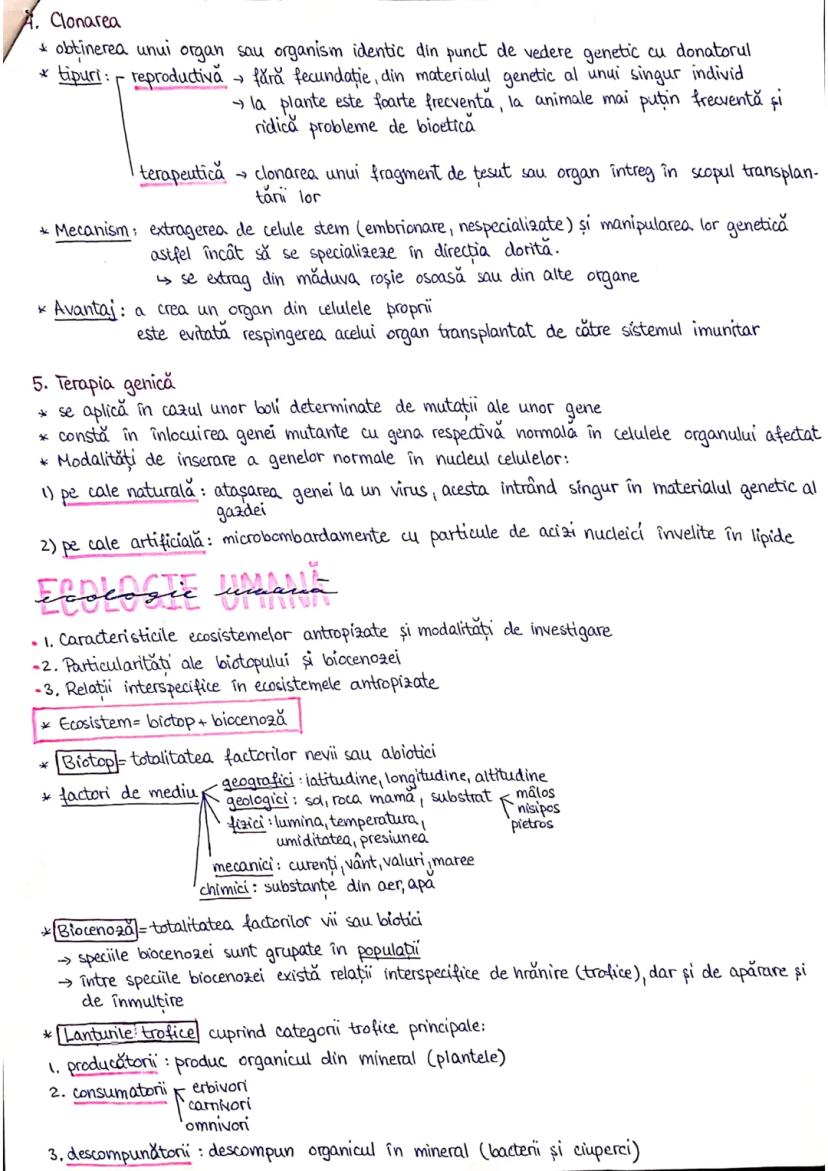 4. Clonarea
* obținerea unui organ sau organism identic din punct de vedere genetic cu donatorul
* tipuri: reproductivă → fără fecundație, din materialul genetic al unui singur individ
→ la plante este foarte frecventă, la animale mai puțin frecventă și
ridică probleme de bioetică
terapeutică → clonarea unui fragment de țesut sau organ întreg în scopul transplan-
tării lor
* Mecanism: extragerea de celule stem (embrionare, nespecializate) și manipularea lor genetică
astfel încât să se specializeze în direcția dorită.
↳ se extrag din măduva roșie osoasă sau din alte organe
* Avantaj: a crea un organ din celulele proprii
este evitată respingerea acelui organ transplantat de către sistemul imunitar
5. Terapia genică
* se aplică în cazul unor boli determinate de mutații ale unor gene
* constă în înlocuirea genei mutante cu gena respectivă normală în celulele organului afectat
* Modalități de inserare a genelor normale în nucleul celulelor:
1) pe cale naturală: atașarea genei la un virus, acesta intrând singur în materialul genetic al
gazdei
2) pe cale artificială: microbombardamente cu particule de acizi nucleici învelite în lipide
ECOLOGIE UMANĂ
ecologie umană
• 1. Caracteristicile ecosistemelor antropizate și modalități de investigare
• 2. Particularități ale biotopului și biocenozei
• 3. Relații interspecifice în ecosistemele antropizate
* Ecosistem = biotop + biocenoză
* Biotop = totalitatea factorilor nevii sau abiotici
* factori de mediu geografici: latitudine, longitudine, altitudine
geologici: sol, roca mamă, substrat mâlos
nisipos
fizici: lumina, temperatura, pietros
umiditatea, presiunea
mecanici: curenți, vânt, valuri, maree
chimici: substanțe din aer, apă
* Biocenoză = totalitatea factorilor vii sau biotici
→ speciile biocenozei sunt grupate în populații
→ între speciile biocenozei există relații interspecifice de hrănire (trofice), dar și de apărare și
de înmulțire
* Lanturile trofice cuprind categorii trofice principale:
1. producătorii: produc organicul din mineral (plantele)
2. consumatorii erbivori
carnivori
omnivori
3. descompunătorii: descompun organicul în mineral (bacterii și ciuperci)